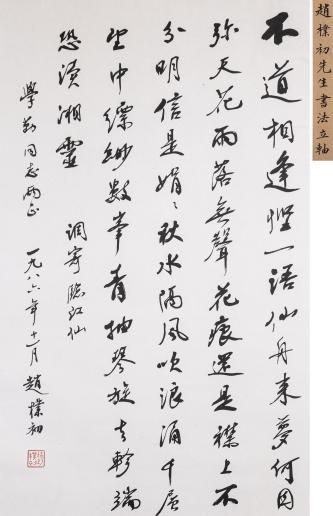 趙樸初先生書法立軸
不道相逢慳一語仙舟來夢何因
弥天花雨落無聲花痕還是襟上不
分明信是娟〻秋水隔風吹浪涌千層
望中縹緲數峯青抽琴旋去軫端
恐瀆湘靈 調寄臨江仙
學同志兩正
一九八六年十一月 趙樸初